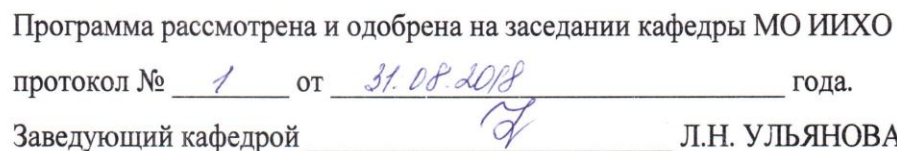 Программа рассмотрена и одобрена на заседании кафедры МО ИИХО
протокол № 1 от 31.08.2018 года.
Заведующий кафедрой Л.Н. УЛЬЯНОВА